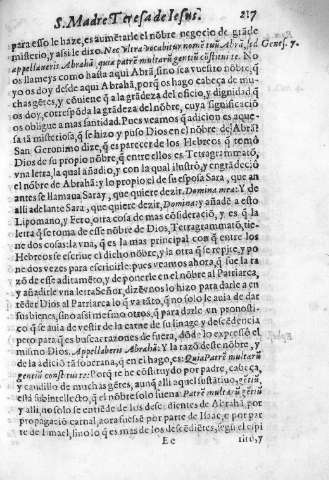 S. Madre Teresa de Iesus. 217
para esso le haze, es aumẽtarle el nõbre negocio de grãde
misterio, y assi le dixo. Nec vltra vocabitur nomẽ tuũ Abrã, sed Genes. 7.
appellaueris Abrahã, quia patrẽ multarũ gentiũ cõstitui te. No
os llameys como hasta aqui Abrã, sino sea vuestro nõbre, q̃
yo os doy desde aqui Abrahã, porq̃ os hago cabeça de mu-
chas gẽtes, y cõuiene q̃ a la grãdeza del oficio, y dignidad q̃
os doy, correspõda la grãdeza del nõbre, cuya significaciõ
os obligue a mas santidad. Pues veamos q̃ adicion es aque-
sta tã misteriosa, q̃ se hizo y puso Dios en el nõbre de Abrã?
San Geronimo dize, q̃ es parecer de los Hebreos q̃ tomò
Dios de su propio nõbre, q̃ entre ellos es Tetragrammatõ,
vna letra, la qual añadio, y con la qual ilustrò, y engrãdeciò
el nõbre de Abrahã: y lo propio el de su esposa Sara, que an
antes se llamaua Saray, que quiere dezir, Domina mea: Y de
alli adelante Sara, que quiere dezir, Domina: y añade a esto
Lipomano, y Fero, otra cosa de mas cõsideració, y es q̃ la
letra q̃ se toma de esse nõbre de Dios, Tetragrammatõ, tie-
ne dos cosas: la vna, q̃ es la mas principal con q̃ entre los
Hebreos se escriue el dicho nõbre, y la otra q̃ se repite, y po
ne dos vezes para escriuirle: pues veamos ahora, q̃ fue la ra
zõ de esse aditamẽto, y de ponerle en el nõbre al Patriarca,
y añadirle vna letra Señor, dizẽnos lo hizo para darle a en
tẽder Dios al Patriarca lo q̃ va tãto, q̃ no solo le auia de dar
sus bienes, sino assi mesmo otros, q̃ para darle vn pronosti-
co q̃ se auia de vestir de la carne de su linage y descẽdẽcia
pero para q̃ es buscar razones de fuera, dõde lo expressò el
mismo Dios. Appellaberis Abrahã: Y la razõ deste nõbre, y
de la adiciõ tã soberana, q̃ en el hago, es: Quia Patrẽ multarũ
gentiũ constitui te: Porq̃ te he cõstituydo por padre, cabeça,
y caudillo de muchas gẽtes, aunq̃ alli aquel sustãtiuo, gẽtiũ,
està subintellecto, q̃ el nõbre solo suena Patrẽ multarũ gẽtiũ
y alli, no solo se entiẽde de los descendientes de Abrahã, por
propagaciõ carnal, aora fuesse por parte de Isaac, o por par
te de Ismael, sino lo q̃ es mas de los descẽdiẽtes, segũ el espi
Ee ritu, y